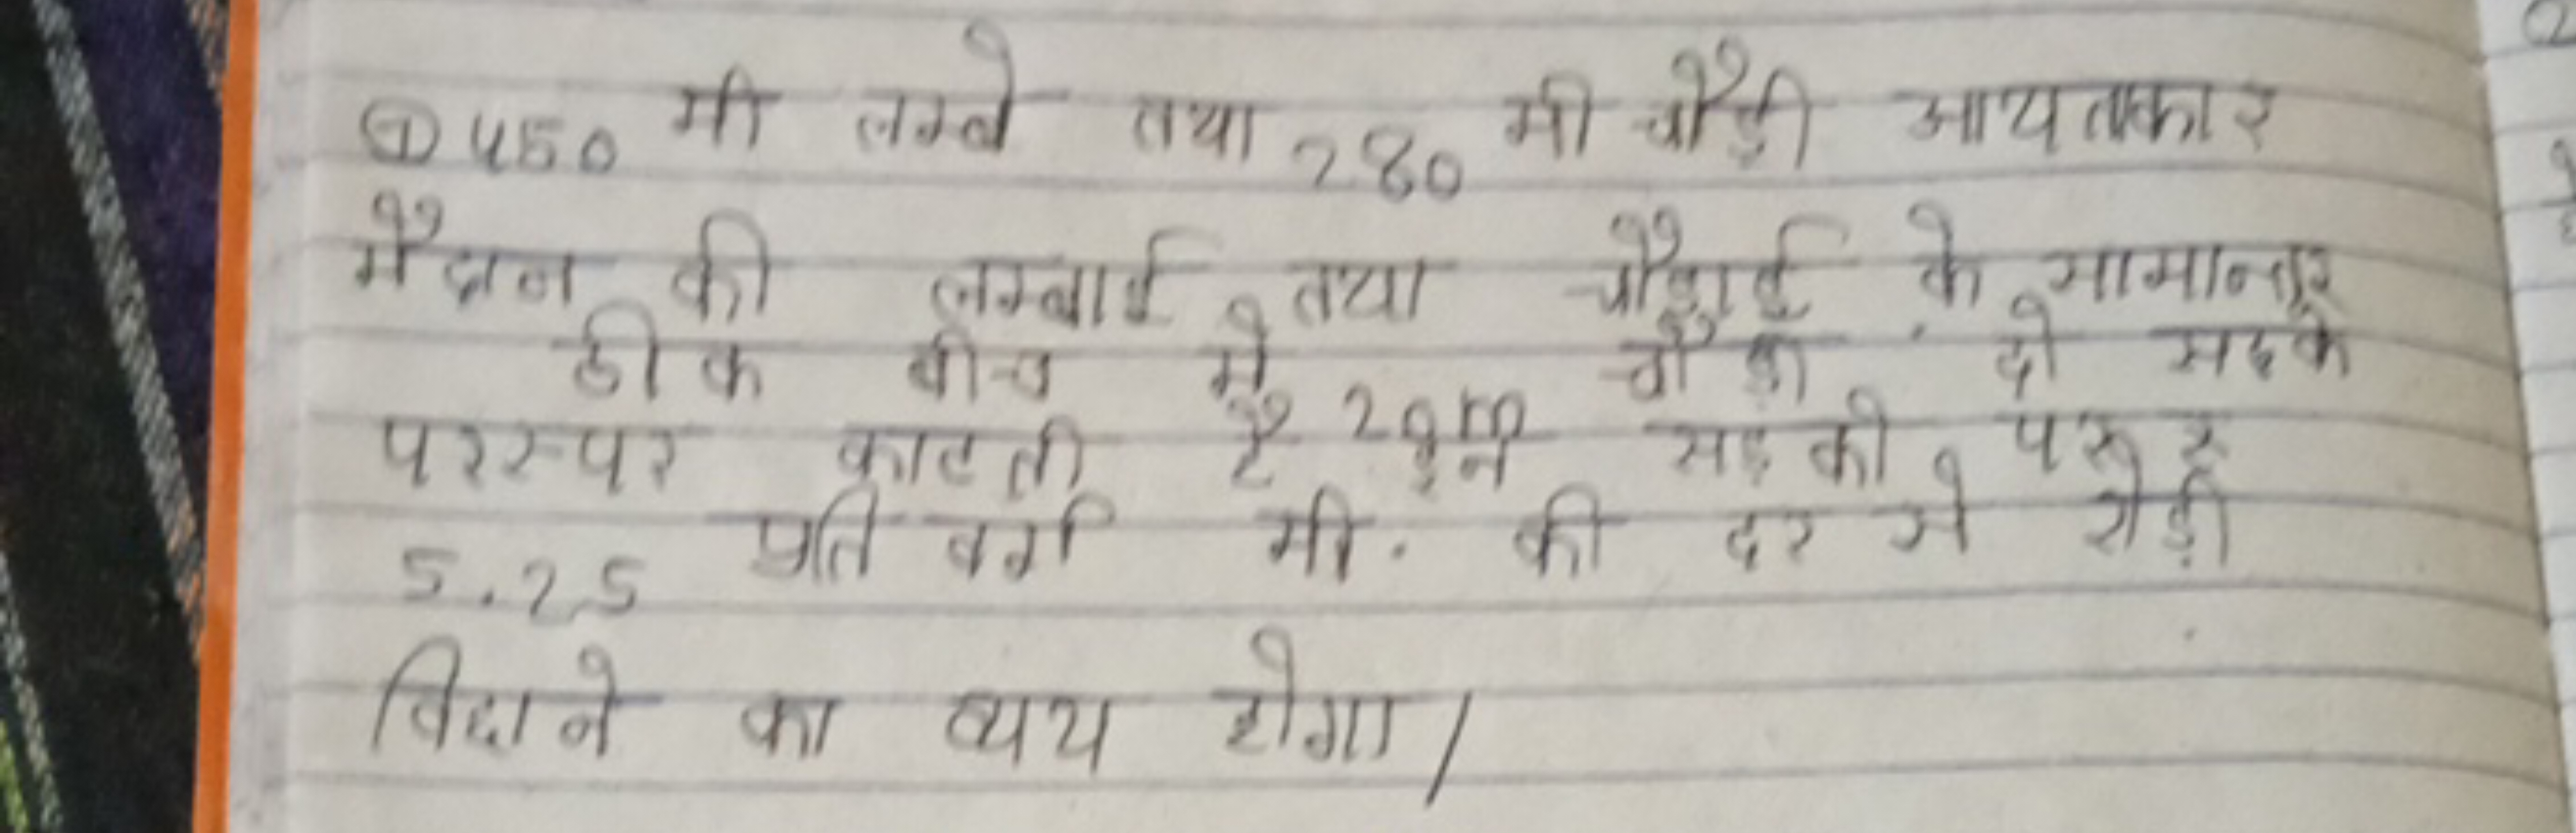 ① 450 मी लम्बे तथा 280 मी चौड़ी आयताकार
मैदान की लम्बाई तथा चौड़ाई के सामान्तर
ठीक बीच में चौड़ी दो सड़के
परस्पर काटती है 20m इन सड़को पर रू
5.25 प्रति वर्ग मी. की दर से रोड़ी
विछाने का व्यय होगा/